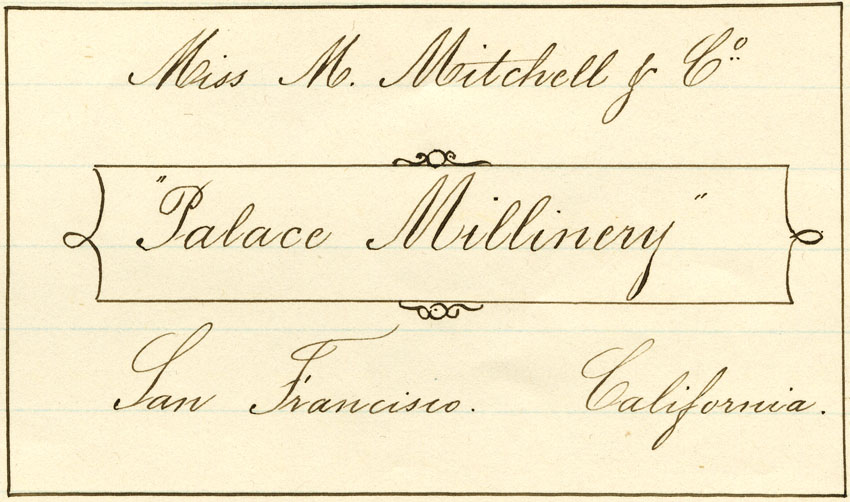 Miss M. Mitchell & Co.
"Palace Millinery"
San Francisco.
California.